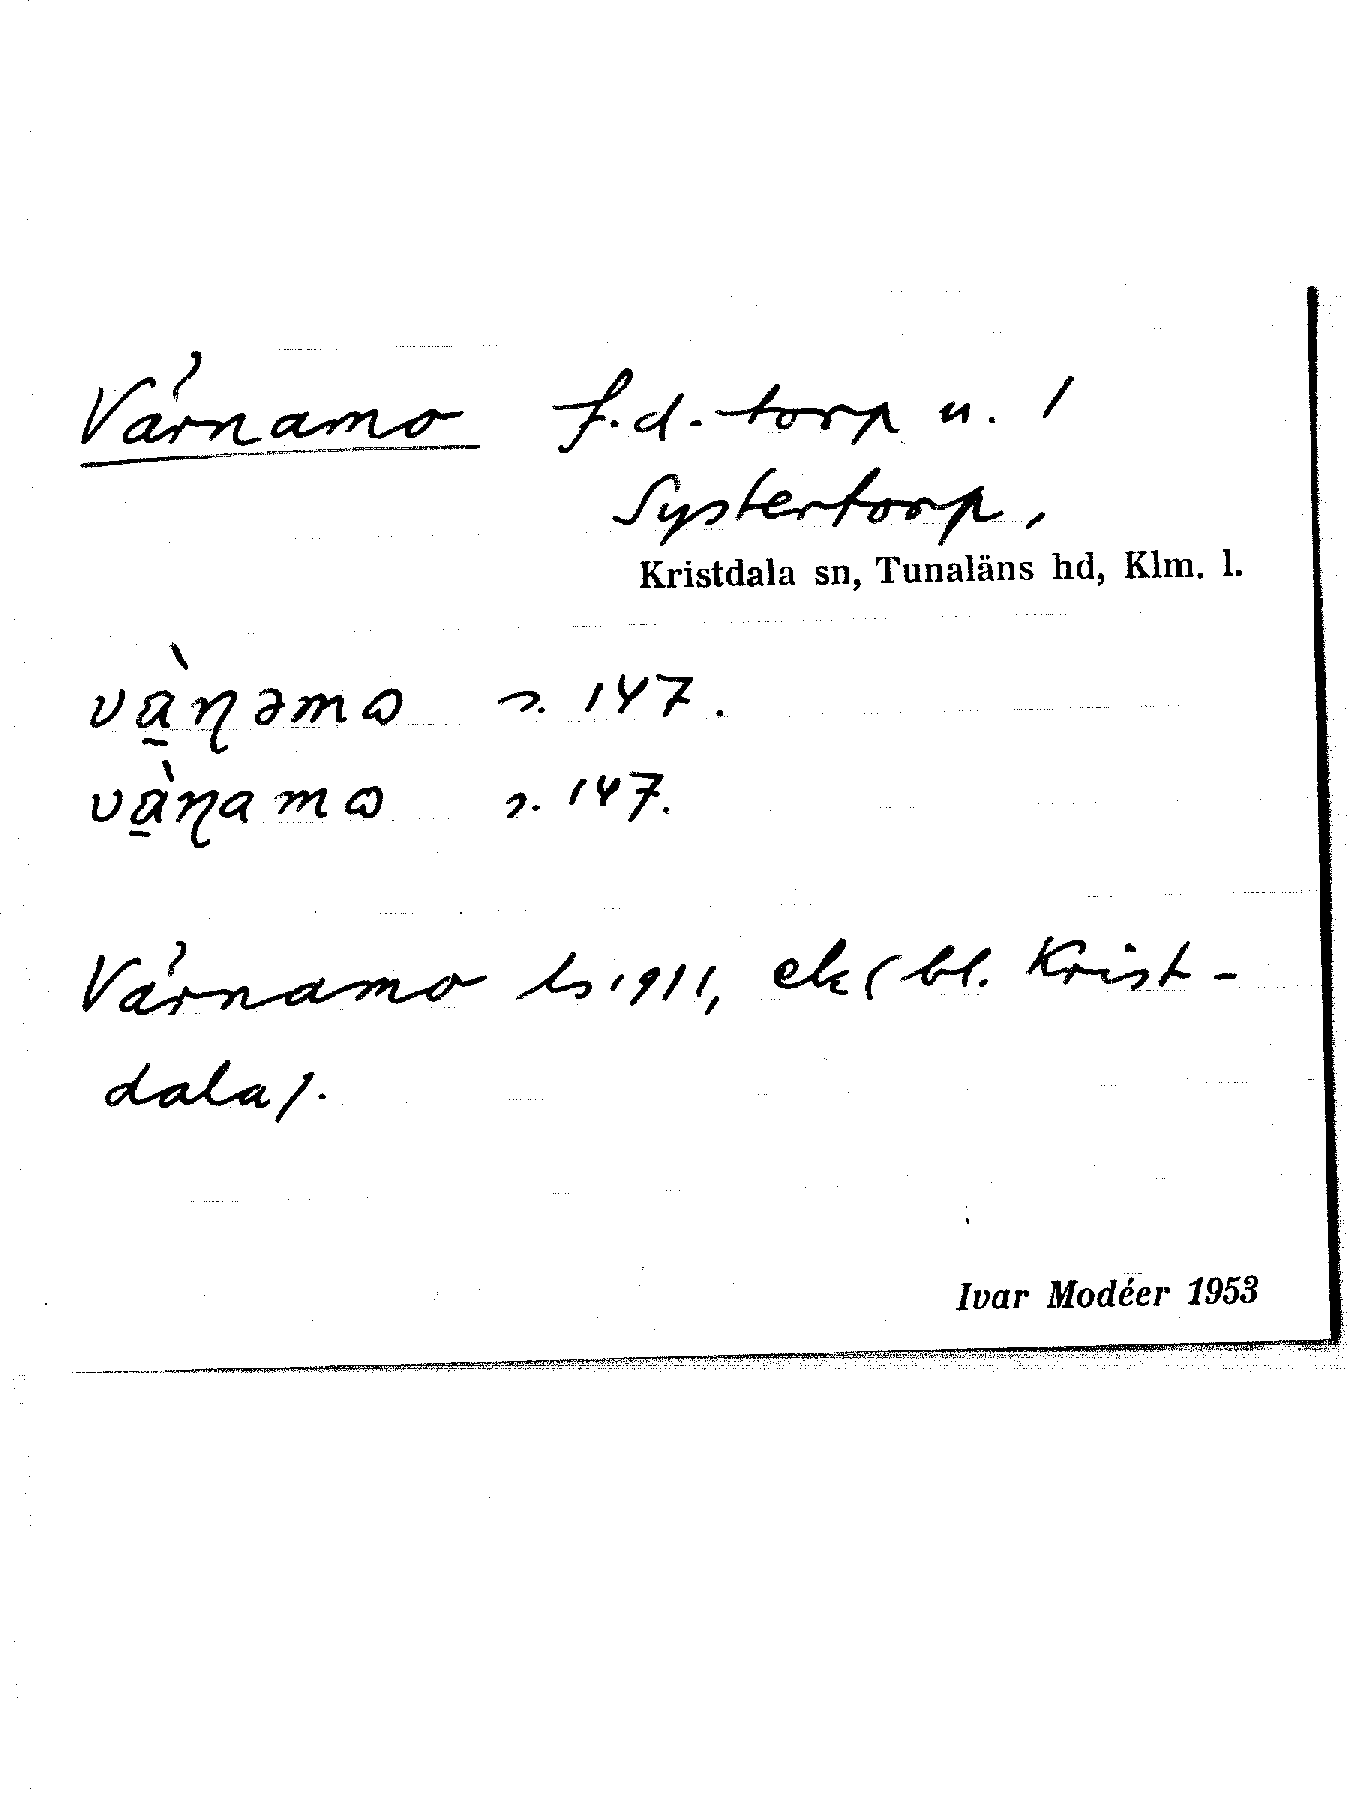 Värnamo f.d. torp u. 1
Systertorp,
Kristdala sn, Tunaläns hd, Klm. l.
vą̀ɳəmɷ s. 147.
vą̀ɳamɷ s. 147.
Värnamo ls 1911, ek (bl. Krist-
dala).
Ivar Modéer 1953